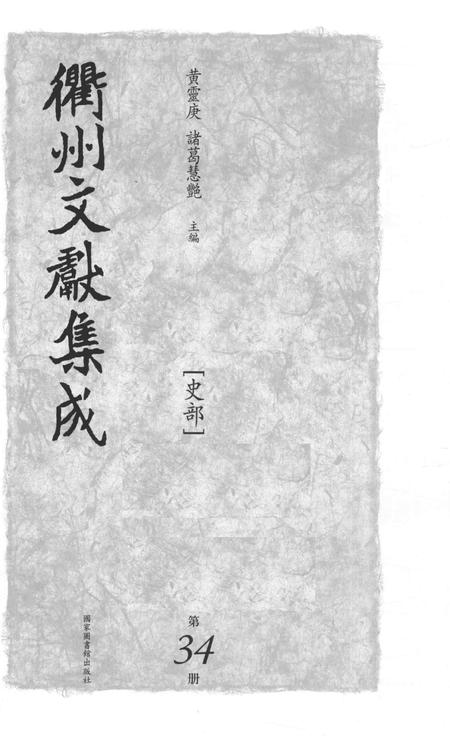 衢州文獻集成
黃靈庚 諸葛慧艷 主編
[史部]
第
34
册
國家圖書館出版社